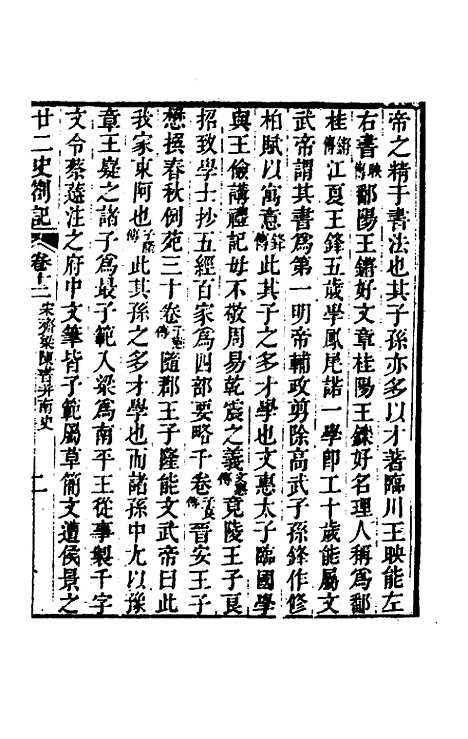 帝之精于書法也其子孫亦多以才著臨川王映能左
右書映傳鄱陽王鏘好文章桂陽王鑠好名理人稱爲鄱
桂鏘傳江夏王鋒五歲學鳳尾諾一學即工十歲能屬文
武帝謂其書爲第一明帝輔政剪除高武子孫鋒作修
柏賦以寓意鋒傳此其子之多才學也文惠太子臨國學
與王儉講禮記毋不敬周易乾震之義文惠傳竟陵王子良
招致學士抄五經百家爲四部要略千卷子良傳晉安王子
懋撰春秋例苑三十卷子懋傳隨郡王子隆能文武帝曰此
我家東阿也子隆傳此其孫之多才學也而諸孫中尤以豫
章王嶷之諸子爲最子範入梁爲南平王從事製千字
文令蔡薳注之府中文筆皆子範屬草簡文遭侯景之
廿二史劄記 卷十二 宋齊梁陳書并南史 二